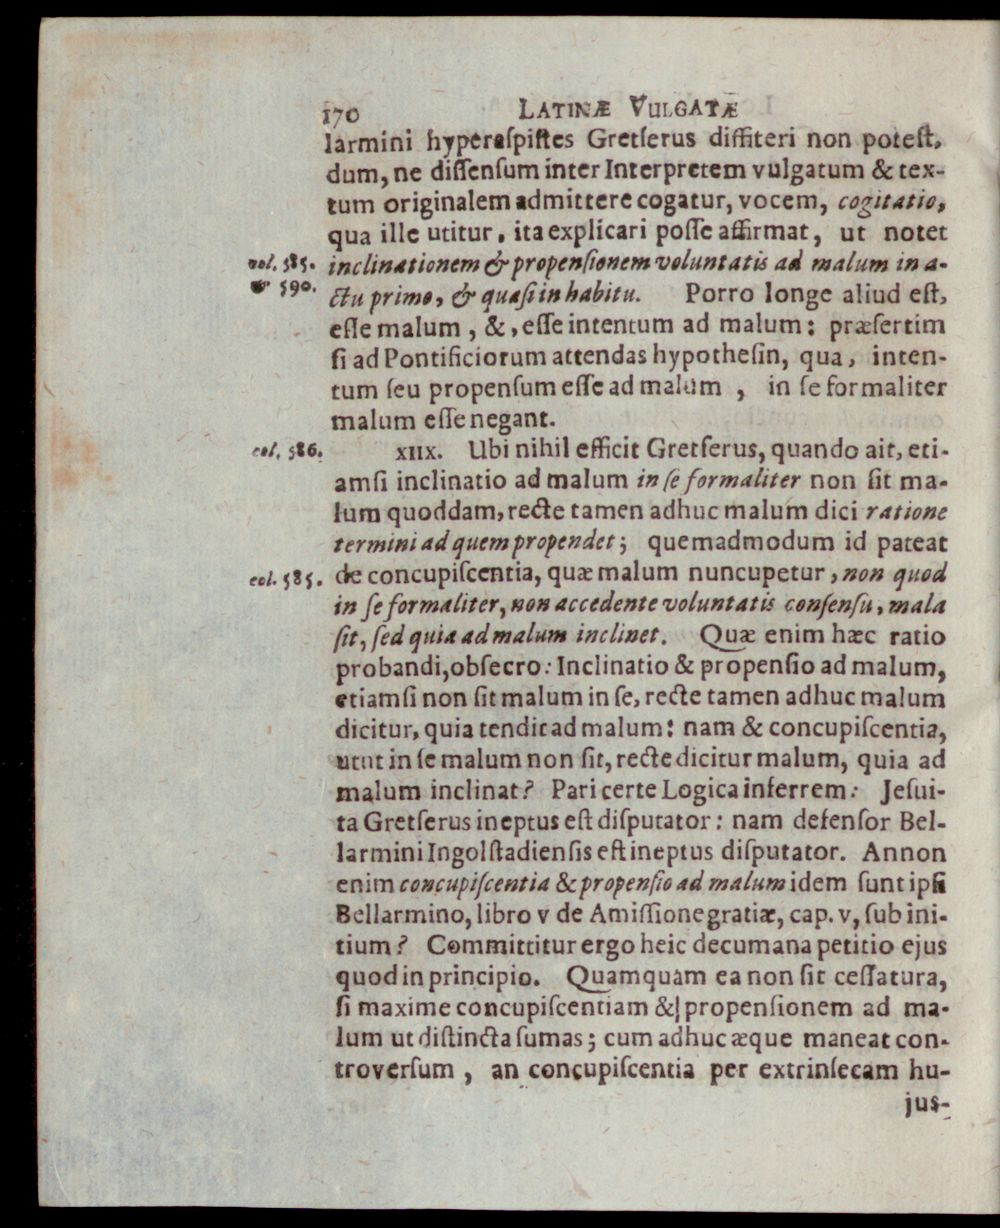 170 LATINÆ VULGATÆ
larmini hyperaſpiſtes Gretſerus diffiteri non poteſt,
dum, ne diſſenſum inter Interpretem vulgatum & tex-
tum originalem admittere cogatur, vocem, cogitatio,
qua ille utitur, ita explicari poſſe affirmat, ut notet
vol. 585. inclinationem & propenſionem voluntatis ad malum in a-
& 590. ctu primo, & quaſi in habitu. Porro longe aliud eſt,
eſſe malum, &, eſſe intentum ad malum: præſertim
ſi ad Pontificiorum attendas hypotheſin, qua, inten-
tum ſeu propenſum eſſe ad malum, in ſe formaliter
malum eſſe negant.
col. 586. XIIX. Ubi nihil efficit Gretſerus, quando ait, eti-
amſi inclinatio ad malum in ſe formaliter non ſit ma-
lum quoddam, recte tamen adhuc malum dici ratione
termini ad quem propendet; quemadmodum id pateat
col. 585. de concupiſcentia, quæ malum nuncupetur, non quod
in ſe formaliter, non accedente voluntatis conſenſu, mala
ſit, ſed quia ad malum inclinet. Quæ enim hæc ratio
probandi, obſecro: Inclinatio & propenſio ad malum,
etiamſi non ſit malum in ſe, recte tamen adhuc malum
dicitur, quia tendit ad malum: nam & concupiſcentia,
utut in ſe malum non ſit, recte dicitur malum, quia ad
malum inclinat? Pari certe Logica inferrem: Jeſui-
ta Gretſerus ineptus eſt diſputator: nam defenſor Bel-
larmini Ingolſtadienſis eſt ineptus diſputator. Annon
enim concupiſcentia & propenſio ad malum idem ſunt ipſi
Bellarmino, libro v de Amiſſione gratiæ, cap. v, ſub ini-
tium? Committitur ergo heic decumana petitio ejus
quod in principio. Quamquam ea non ſit ceſſatura,
ſi maxime concupiſcentiam & propenſionem ad ma-
lum ut diſtincta ſumas; cum adhuc æque maneat con-
troverſum, an concupiſcentia per extrinſecam hu-
jus-